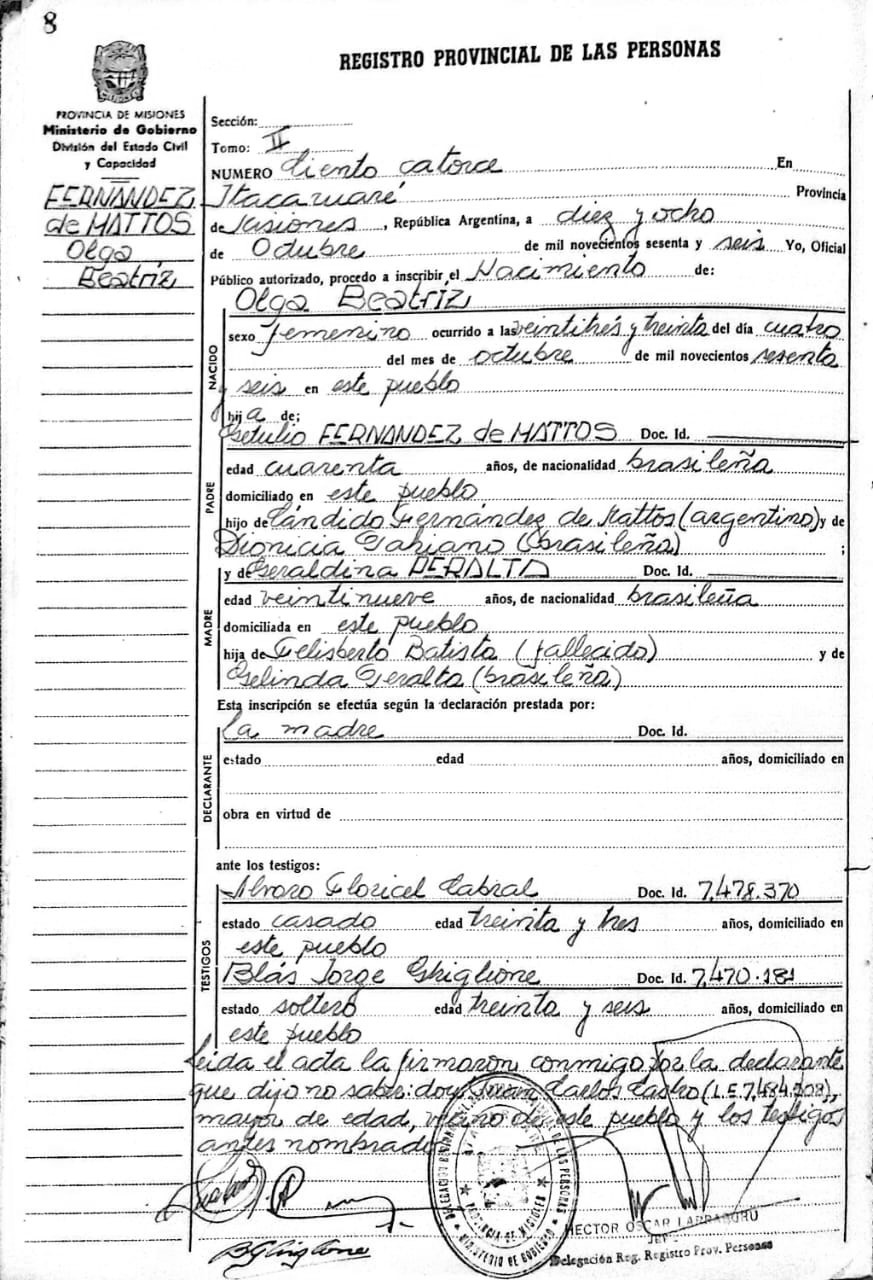 8
REGISTRO PROVINCIAL DE LAS PERSONAS
PROVINCIA DE MISIONES
Ministerio de Gobierno
División del Estado Civil
y Capacidad
FERNANDEZ
de MATTOS
Olga
Beatríz
Sección:
Tomo: II
NUMERO Ciento catorce En
Itacaruaré Provincia
de Misiones, República Argentina, a diez y ocho
de Octubre de mil novecientos sesenta y seis Yo, Oficial
Público autorizado, procedo a inscribir el Nacimiento de:
Olga Beatríz
NACIDO
sexo femenino ocurrido a las veintitrés y treinta del día cuatro
del mes de octubre de mil novecientos sesenta
y seis en este pueblo
hija de;
PADRE
Getulio FERNANDEZ de MATTOS Doc. Id.
edad cuarenta años, de nacionalidad brasileña
domiciliado en este pueblo
hijo de Cándido Fernández de Mattos (argentino) y de
Dionicia (brasileña) ;
MADRE
y de Geraldina PERALTA Doc. Id.
edad veintinueve años, de nacionalidad brasileña
domiciliada en este pueblo
hija de Felisberto Batista (fallecido) y de
Gelinda Peralta (brasileña)
Esta inscripción se efectúa según la declaración prestada por:
DECLARANTE
la madre Doc. Id.
estado edad años, domiciliado en
obra en virtud de
ante los testigos:
TESTIGOS
Alvaro Floricel Cabral Doc. Id. 7.478.370
estado casado edad treinta y tres años, domiciliado en
este pueblo
Blás Jorge Ghiglione Doc. Id. 7.470.181
estado soltero edad treinta y seis años, domiciliado en
este pueblo
Leida el acta la firmaron conmigo por la declarante
que dijo no saber: don Juan Carlos Castro (L.E. 7.484.208),
mayor de edad, vecino de este pueblo y los testigos
antes nombrados
BGhiglione
PROVINCIA DE MISIONES
MINISTERIO DE GOBIERNO
HECTOR OSCAR LARRABURU
Jefe
Delegación Reg. Registro Prov. Personas